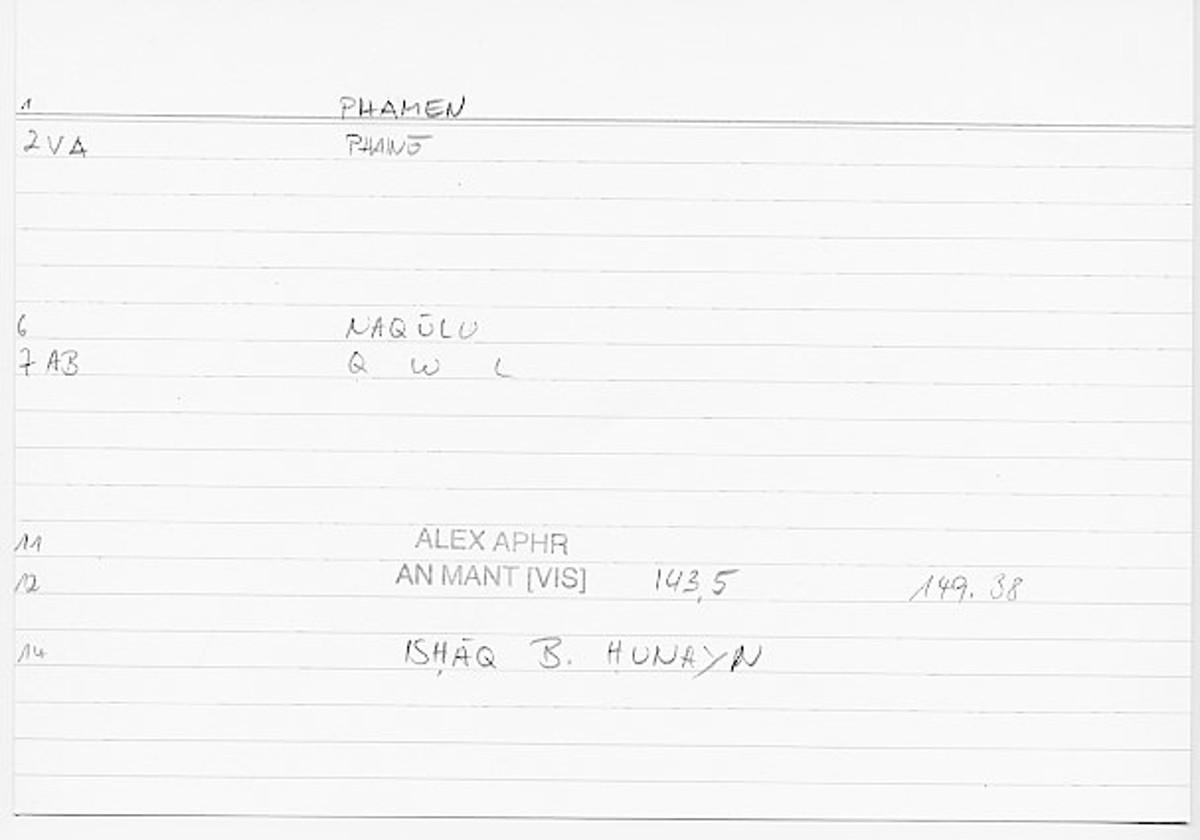 1 PHAMEN
2 VA PHAINŌ
6 NAQŪLU
7 AB Q W L
11 ALEX APHR
12 AN MANT [VIS] 143,5 149.38
14 ISḤĀQ B. ḤUNAYN